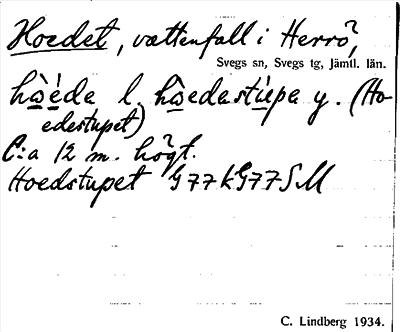 Hoedet, vattenfall i Herrö,
Svegs sn, Svegs tg, Jämtl. län.
hòéde l. hòedestúpe y. (Ho-
edestupet)
C:a 12 m. högt.
Hoedstupet G77kG77SM
C. Lindberg 1934.